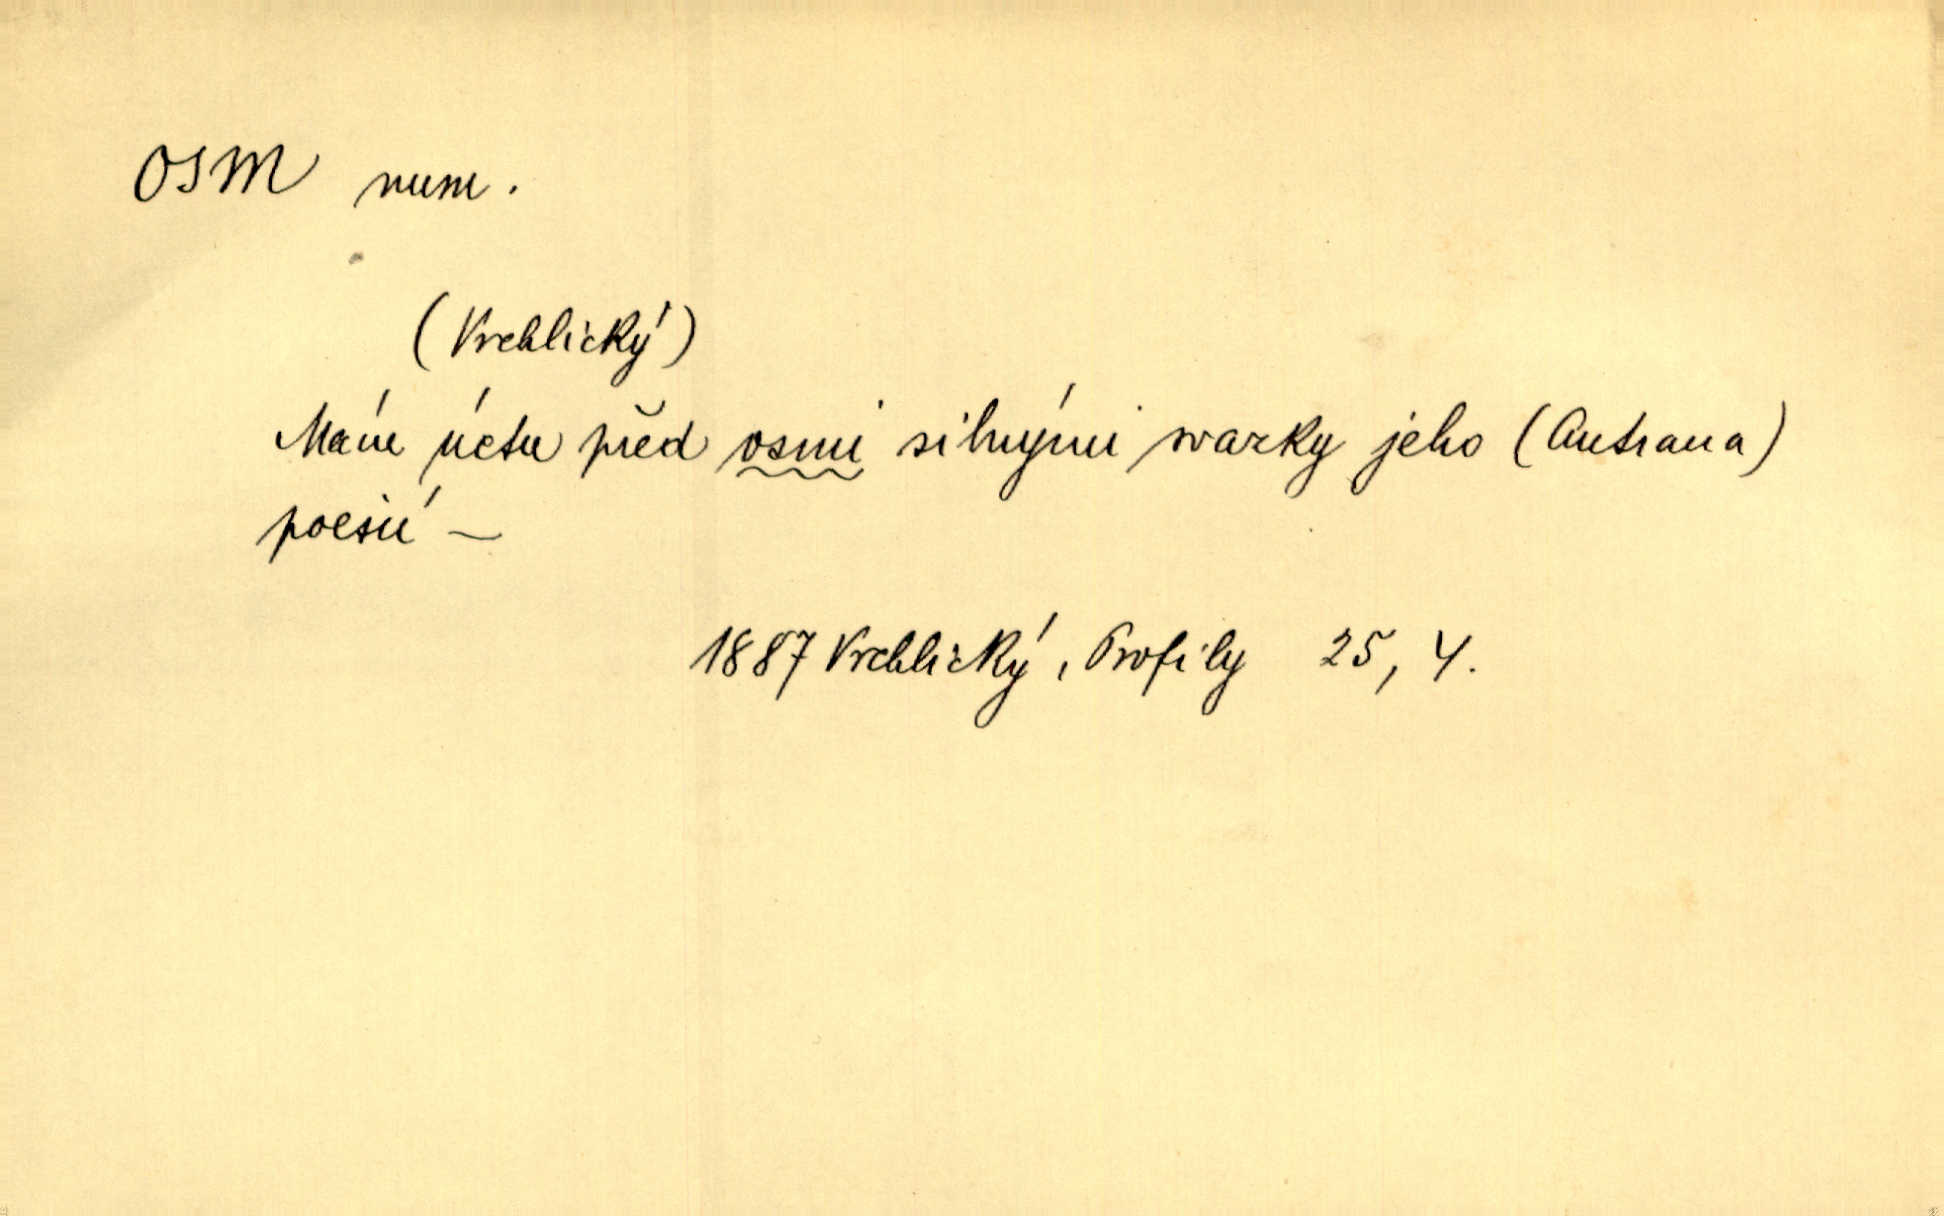 OSM num.
(Vrchlický)
Mám úctu před osmi silnými svazky jeho (Autrana)
poesií —
1887 Vrchlický, Profily 25, 4.